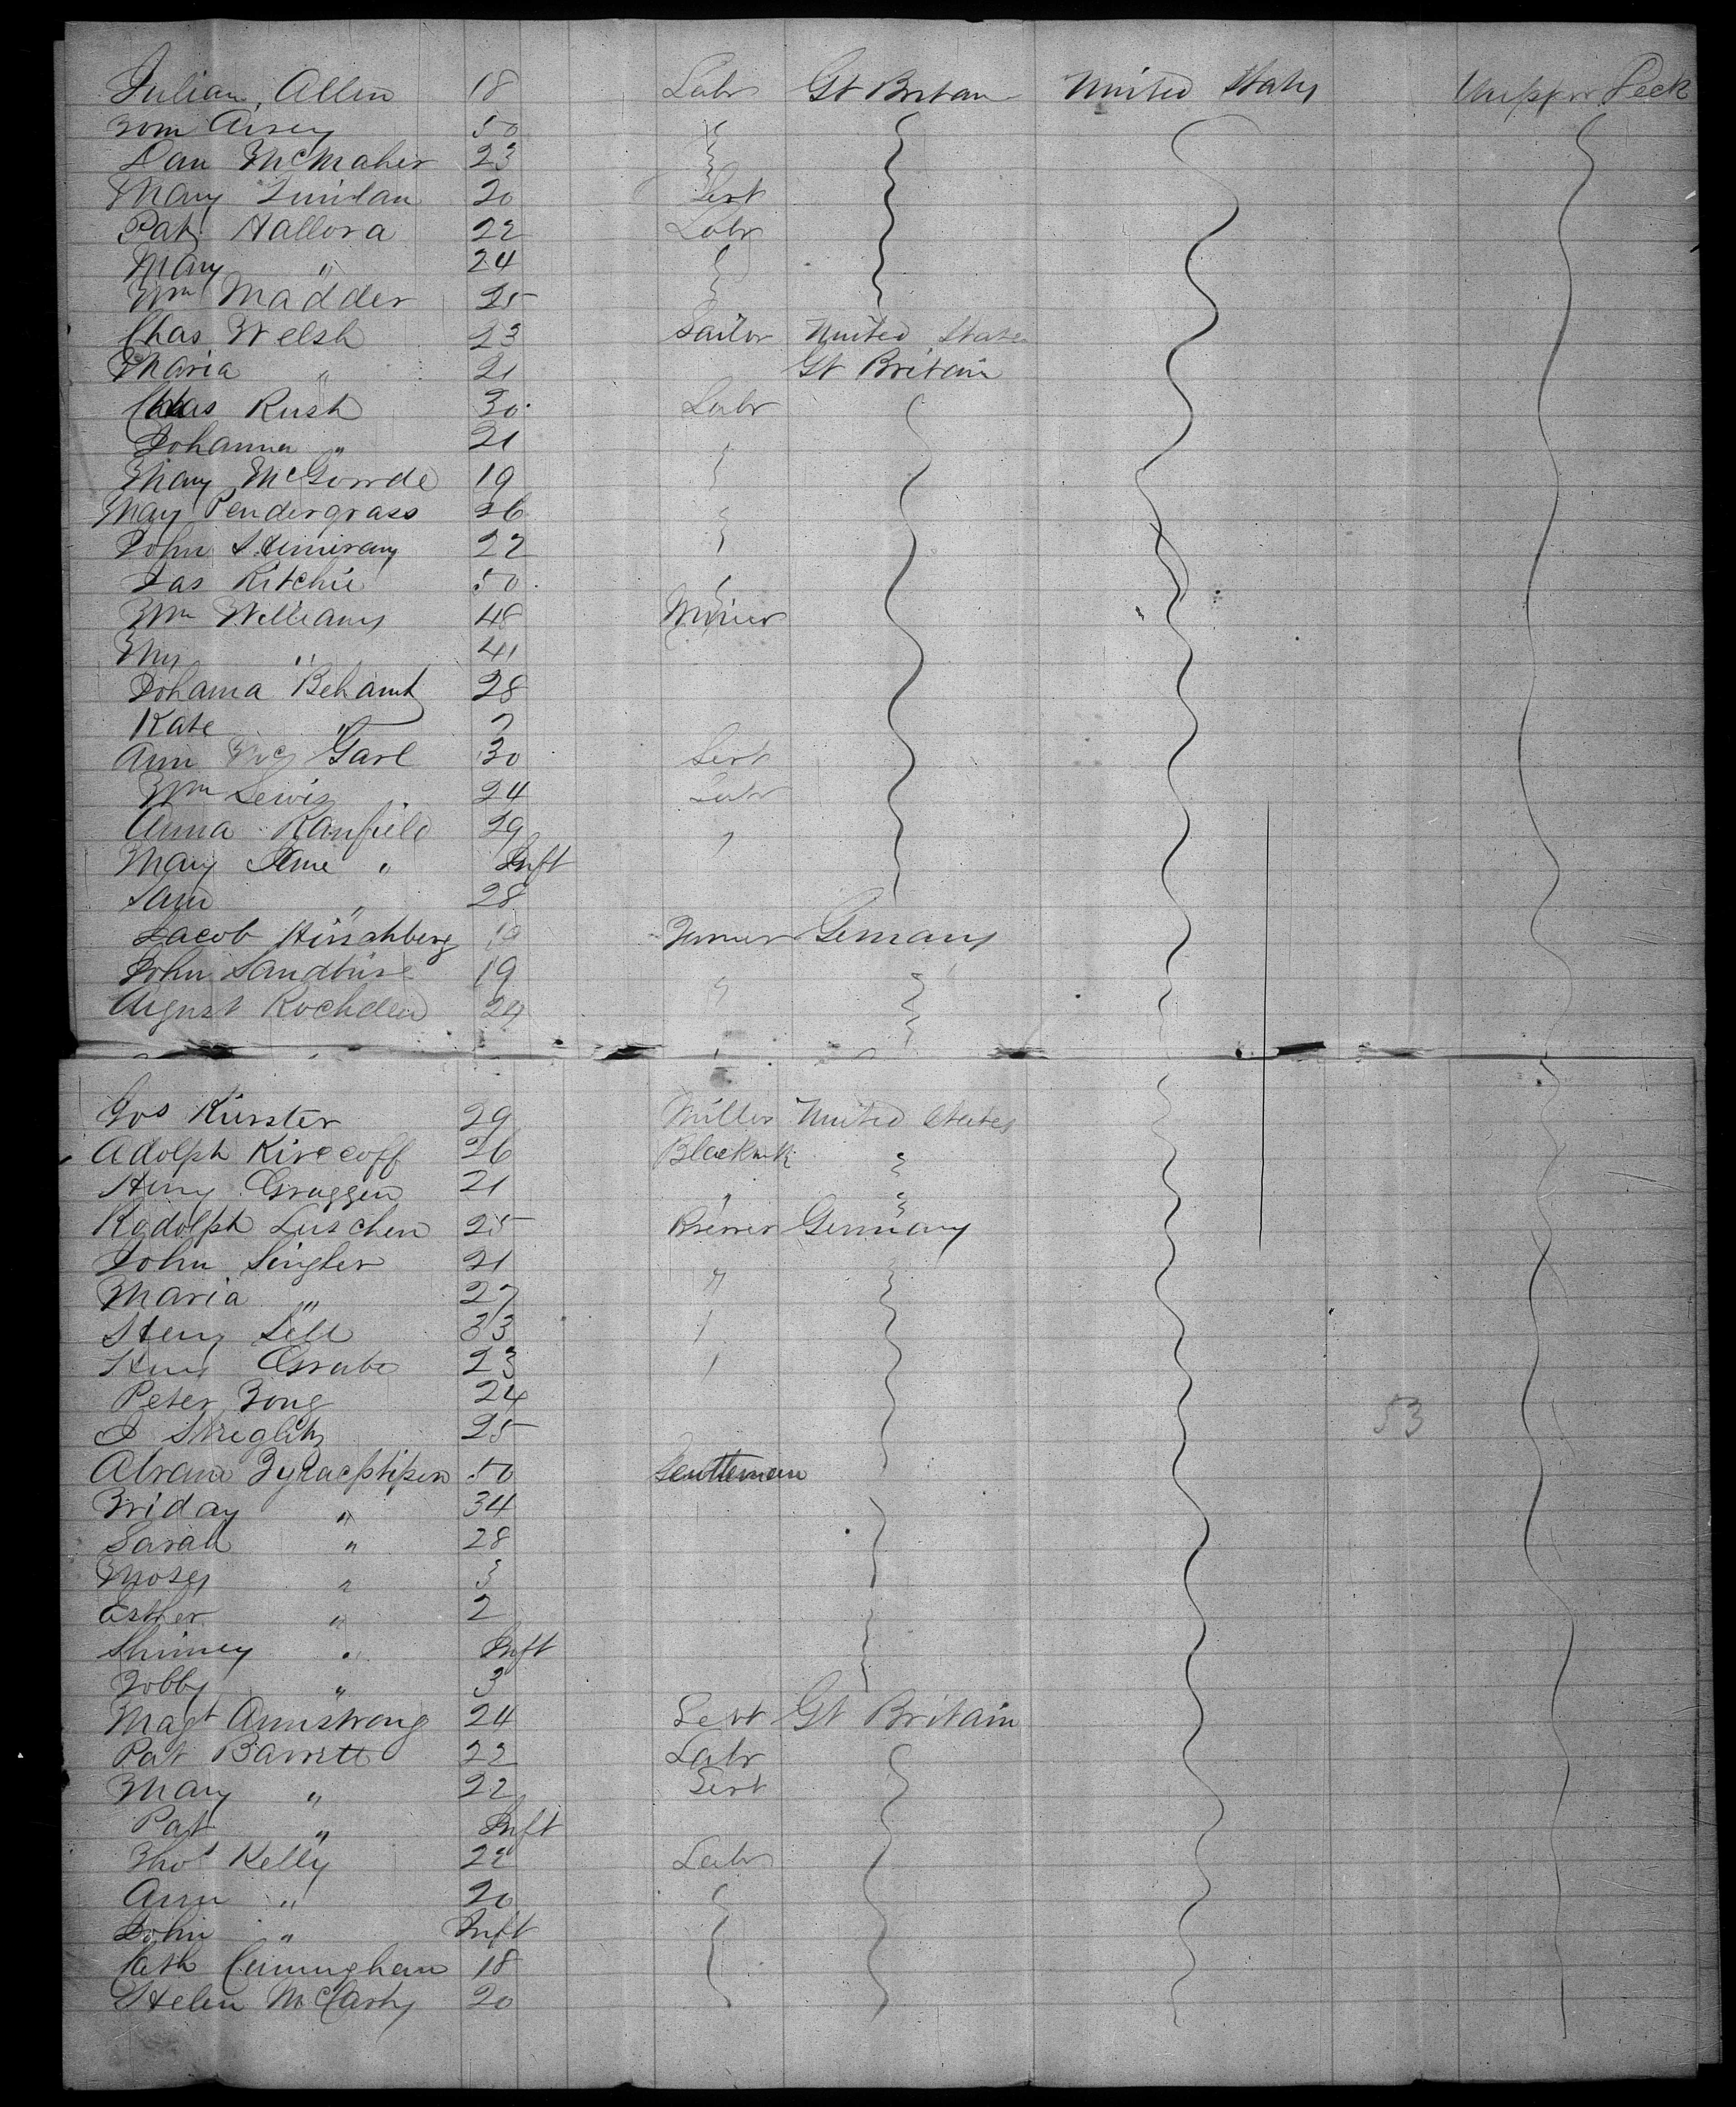 Julian Allen 18 Labr Gt Britain United States Upper Deck
Tom Aisey 50
Dan McMaher 23
Mary Quinlan 20 Servt
Pat Hallora 22 Labr
Mary " 24
Wm Madder 25
Chas Welsh 23 Sailor United States
Maria " 21 Gt Britain
Chas Rush 30 Labr
Johanna " 21
Mary McGowde 19
May Pendergrass 26
John 22
Jas Ritchie 50
Wm Williams 48 Miner
Mrs " 41
Johanna 28
Kate " 7
Ann Mc Garl 30 Servt
Wm Lewis 24 Labr
Anna Ranfield 29 "
Mary Ane " Inft
Sam " 28
Jacob Hirschberg 19 Farmer Germany
John 19 "
August Rochden 24
Jos Kurster 29 Miller United States
Adolph Kirccoff 26 Blacksmk "
Heny Gruggen 21 " "
Rodolph Luschen 25 Brewer Germany
John Singler 21 "
Maria " 27
Heny Sell 33 "
Heny Grabe 23 "
Peter Zong 24
J Streglitz 25
Abram 50 Gentleman
Friday " 34
Sarah " 28
Moses " 3
Esther " 2
Shimey " Inft
Tobby " 3
Magt Armstrong 24 Servt Gt Britain
Pat Barrett 22 Labr
Mary " 22 Servt
Pat " Inft
Thos Kelly 22 Labr
Ann " 20
John " Inft
Cath Cunningham 18
Helen McCarty 20
53